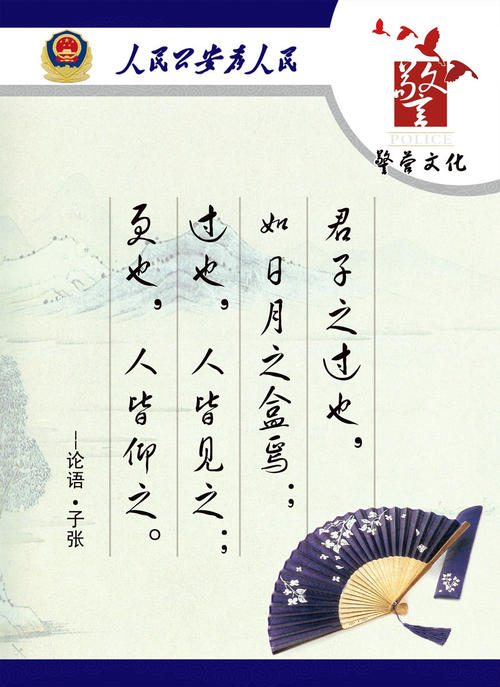 人民公安为人民
警
POLICE
警营文化
君子之过也，
如日月之盒焉；
过也，人皆见之；
更也，人皆仰之。
—论语·子张